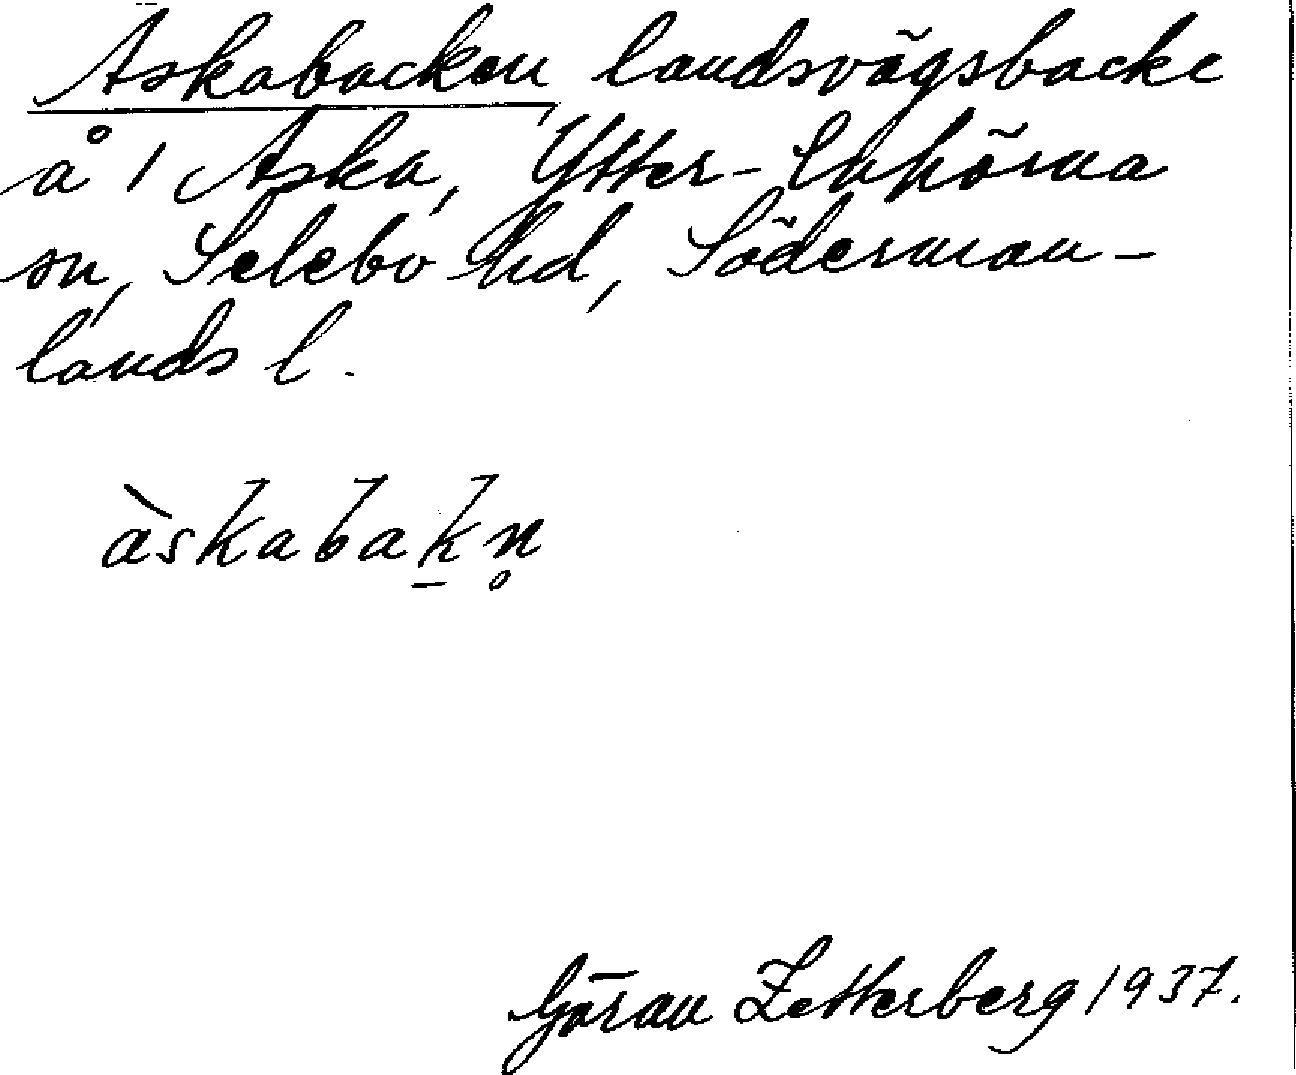 Askabacken landsvägsbacke
å 1 Aska, Ytter-Enhörna
sn, Selebo hd, Söderman-
lands l.
àskabak̠n̥
Göran Zetterberg 1937.